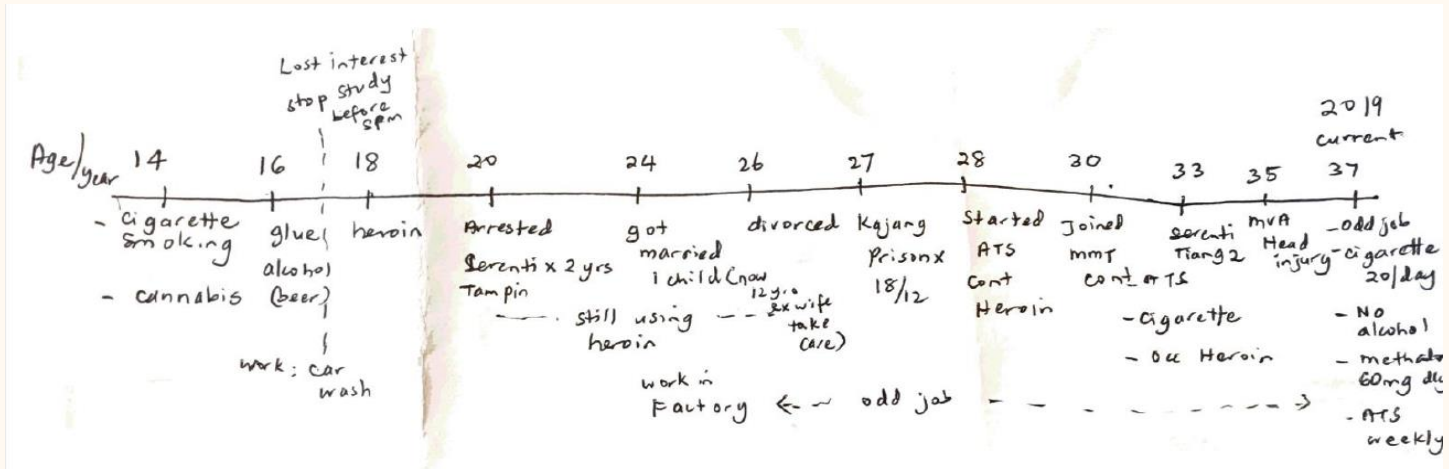 Lost interest
stop study
before
spm
2019
current
Age/year 14 16 18 20 24 26 27 28 30 33 35 37
- cigarette
smoking
- cannabis
glue/
alcohol
(beer)
work: car
wash
heroin
Arrested
Serenti x 2 yrs
Tampin
got
married
1 child (now
12 y.o
ex wife
take
care)
still using
heroin
work in
Factory
odd job
divorced
Kajang
Prison x
18/12
Started
ATS
cont
Heroin
Joined
mmT
cont ATS
- cigarette
- occ Heroin
serenti
Tiang 2
MVA
Head
injury
- odd job
- cigarette
20/day
- No
alcohol
- methado
60mg dly
- ATS
weekly